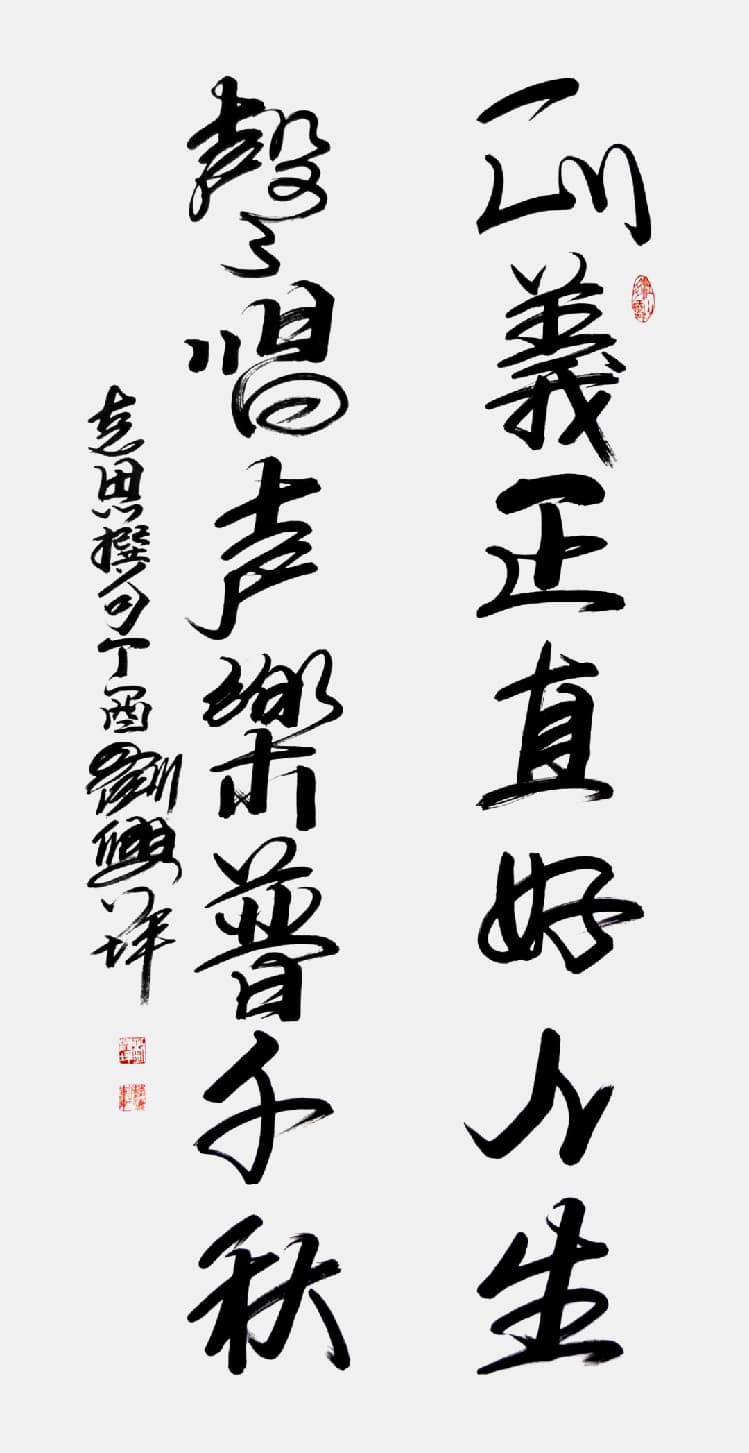 训義正直好人生
聲唱声樂普千秋
志思撰句丁酉劉興